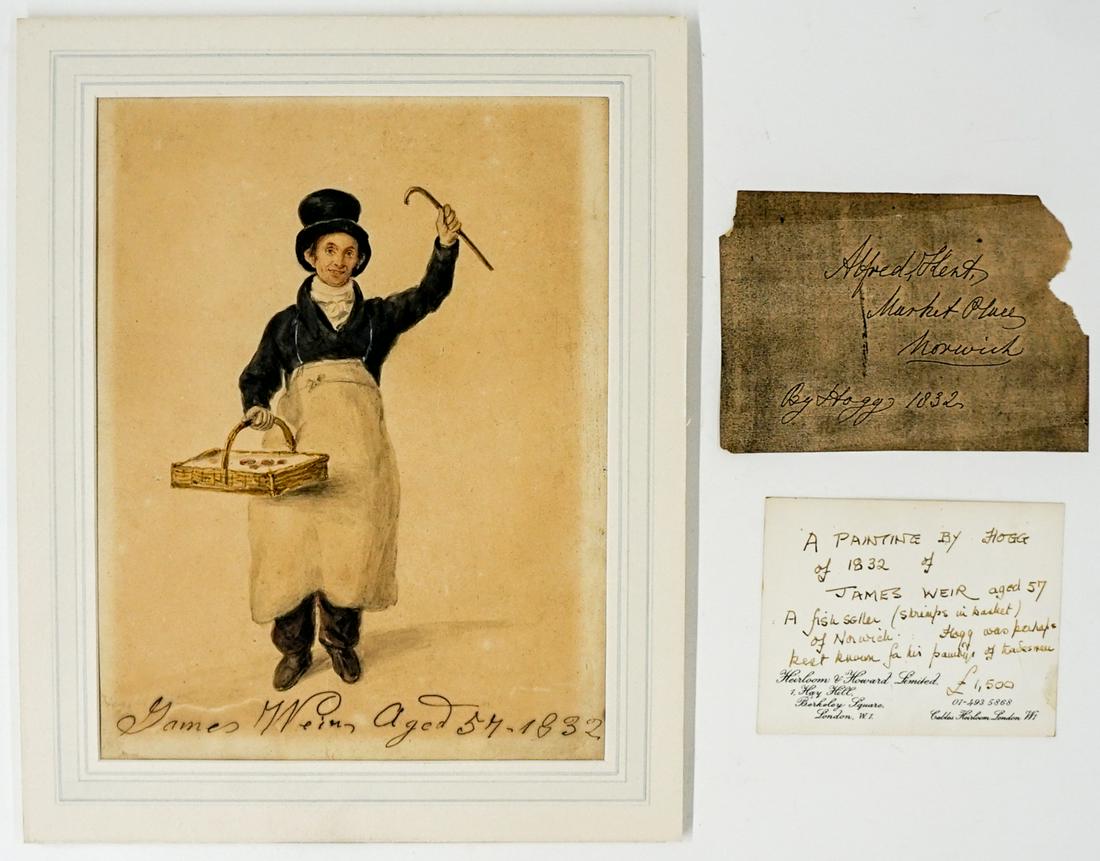 James Weir Aged 57-1832
Alfred Kent
Market Place
Norwich
By Hogg 1832
A PAINTING BY HOGG
of 1832 of
JAMES WEIR aged 57
A fish seller (shrimps in basket)
of Norwich. Hogg was perhaps
best known for his paintings of tradesmen
Heirloom & Howard Limited.
£1,500
1, Hay Hill,
Berkeley Square,
London, W.1.
01-493 5868
Cables Heirloom London W1